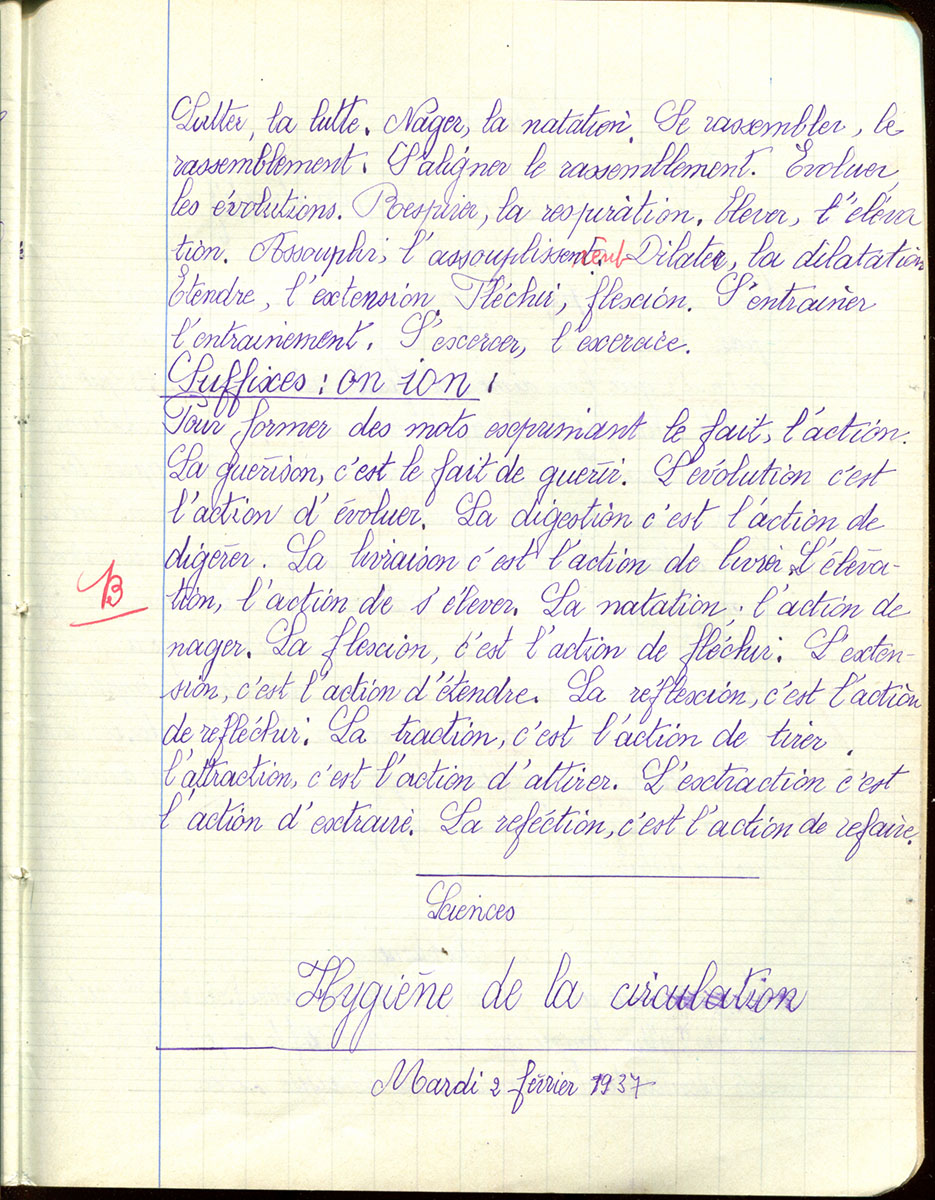 Lutter, la lutte. Nager, la natation. Se rassembler, le
rassemblement. S'aligner le rassemblement. Évoluer,
les évolutions. Respirer, la respiration. Elever, l'éléva
tion. Assouplir, l'assouplissement. Dilater, la dilatation
Etendre, l'extension. Fléchir, flexion. S'entrainer
l'entrainement. S'exercer, l'exercice.
Suffixes : on ion :
Pour former des mots exprimant le fait, l'action.
La guérison, c'est le fait de guérir. L'évolution c'est
l'action d'évoluer. La digestion c'est l'action de
digérer. La livraison c'est l'action de livrer. L'éléva-
tion, l'action de s'élever. La natation : l'action de
B
nager. La flexion, c'est l'action de fléchir. L'exten-
sion, c'est l'action d'étendre. La réflexion, c'est l'action
de refléchir. La traction, c'est l'action de tirer.
l'attraction, c'est l'action d'attirer. L'exctraction c'est
l'action d'extraire. La reféction, c'est l'action de refaire.
Sciences
Hygiène de la circulation
Mardi 2 février 1937